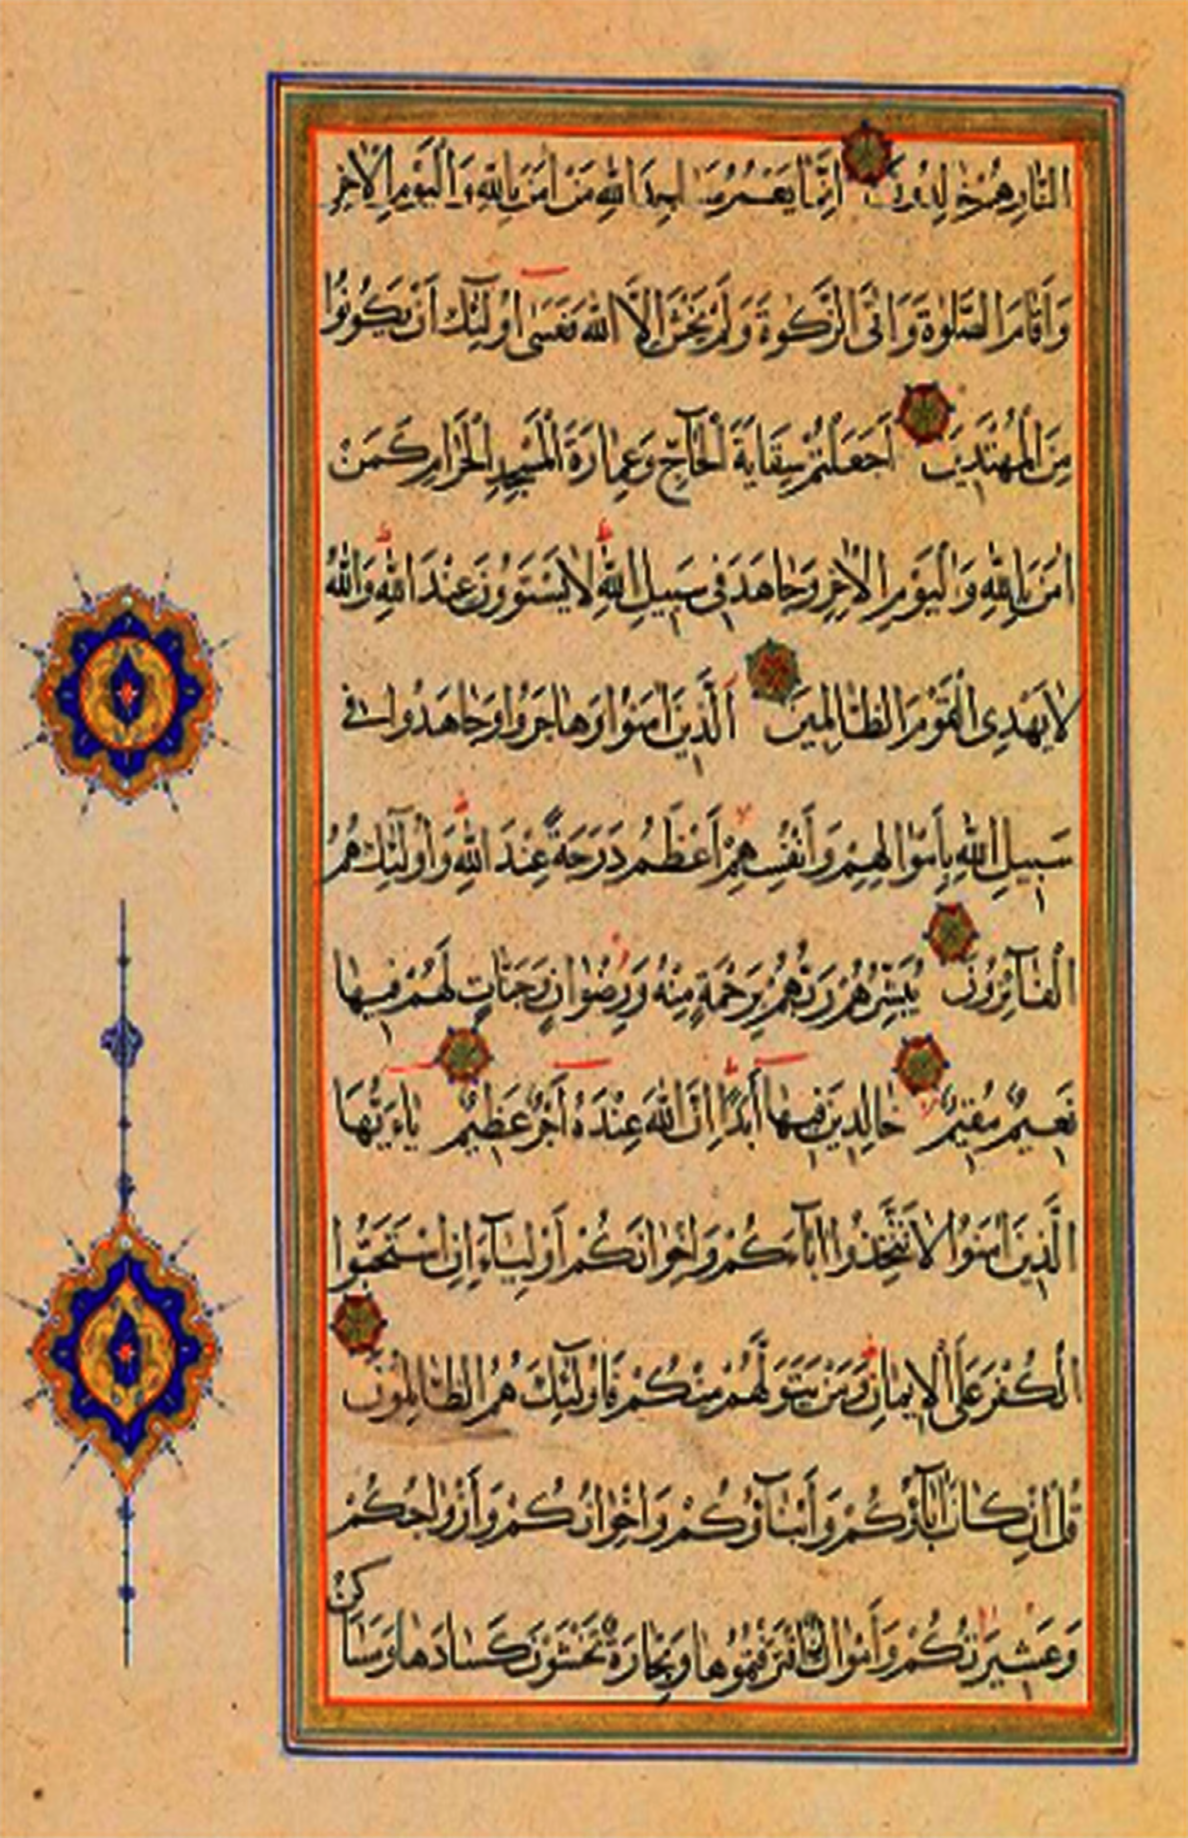 النَّارِ هُمْ خَالِدُونَ اِنَّمَا يَعْمُرُ مَسَاجِدَ اللهِ مَنْ اٰمَنَ بِاللهِ وَالْيَوْمِ الْاٰخِرِ
وَأَقَامَ الصَّلٰوةَ وَاٰتَى الزَّكٰوةَ وَلَمْ يَخْشَ اِلَّا اللهَ فَعَسٰى اُولٰٓئِكَ أَنْ يَكُونُوا
مِنَ الْمُهْتَدِينَ أَجَعَلْتُمْ سِقَايَةَ الْحَآجِّ وَعِمَارَةَ الْمَسْجِدِ الْحَرَامِ كَمَنْ
اٰمَنَ بِاللهِ وَالْيَوْمِ الْاٰخِرِ وَجَاهَدَ فِى سَبِيلِ اللهِ لَا يَسْتَوُونَ عِنْدَ اللهِ وَاللهُ
لَا يَهْدِى الْقَوْمَ الظَّالِمِينَ اَلَّذِينَ اٰمَنُوا وَهَاجَرُوا وَجَاهَدُوا فِى
سَبِيلِ اللهِ بِأَمْوَالِهِمْ وَأَنْفُسِهِمْ أَعْظَمُ دَرَجَةً عِنْدَ اللهِ وَاُولٰٓئِكَ هُمُ
الْفَآئِزُونَ يُبَشِّرُهُمْ رَبُّهُمْ بِرَحْمَةٍ مِنْهُ وَرِضْوَانٍ وَجَنَّاتٍ لَهُمْ فِيهَا
نَعِيمٌ مُقِيمٌ خَالِدِينَ فِيهَآ أَبَدًا اِنَّ اللهَ عِنْدَهُ أَجْرٌ عَظِيمٌ يَاءَيُّهَا
الَّذِينَ اٰمَنُوا لَا تَتَّخِذُوا اٰبَآءَكُمْ وَاِخْوَانَكُمْ أَوْلِيَآءَ اِنِ اسْتَحَبُّوا
الْكُفْرَ عَلَى الْاِيمَانِ وَمَنْ يَتَوَلَّهُمْ مِنْكُمْ فَاُولٰٓئِكَ هُمُ الظَّالِمُونَ
قُلْ اِنْ كَانَ اٰبَآؤُكُمْ وَأَبْنَآؤُكُمْ وَاِخْوَانُكُمْ وَأَزْوَاجُكُمْ
وَعَشِيرَتُكُمْ وَأَمْوَالٌ اقْتَرَفْتُمُوهَا وَتِجَارَةٌ تَخْشَوْنَ كَسَادَهَا وَمَسَاكِنُ